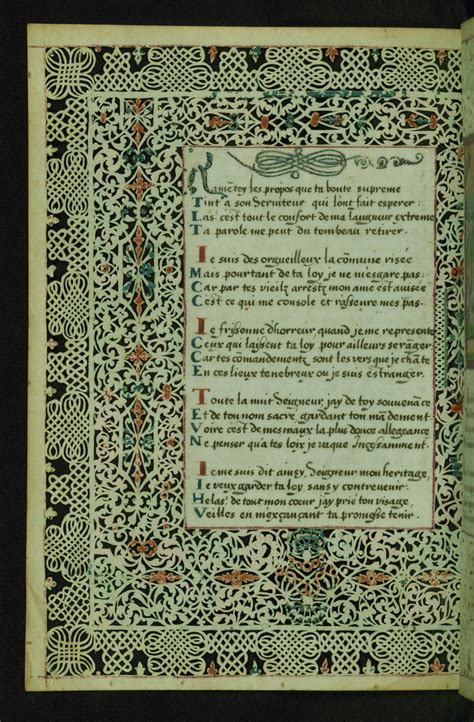 Ramẽtoy les propos que ta bonte supreme
Tint a son Serviteur qui lout fait esperer:
Las cest tout le confort de ma langueur extreme
Ta parole me peut du tombeau retirer.
Ie suis des orgueilleux la cõmune visée
Mais pourtant de ta loy je ne mesgare pas:
Car par tes vieilz arrestz mon ame est avisée
Cest ce qui me console et rasseure mes pas.
Ie frissonne dhorreur quand je me represente
Ceux qui laissent ta loy pour ailleurs seranger.
Car tes comandementz sont les vers que je chãte
En ces lieux tenebreux ou je suis estranger.
Toute la nuit Seigneur jay de toy souvenãce
Et de ton nom sacre gardant ton mãdement
Voire cest de mes maux la plus douce allegeance
Ne penser qua tes loix je vaque Incessamment.
Ie me suis dit ainsy, Seigneur mon heritage,
Ie veux garder ta loy sans y contrevenir.
Helas! de tout mon cœur jay prie ton visage,
Veilles en mexcauçant ta promesse tenir.